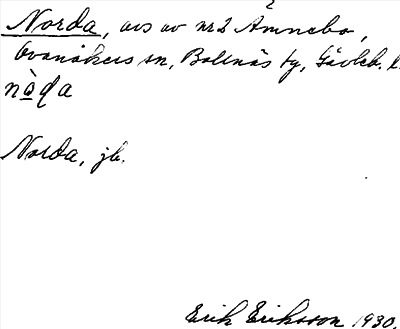 Norda, avs av nr 2 Ämnebo,
Ovanåkers sn, Bollnäs tg, Gävleb. l.
nòḍa
Norda, jb.
Erik Eriksson 1930.